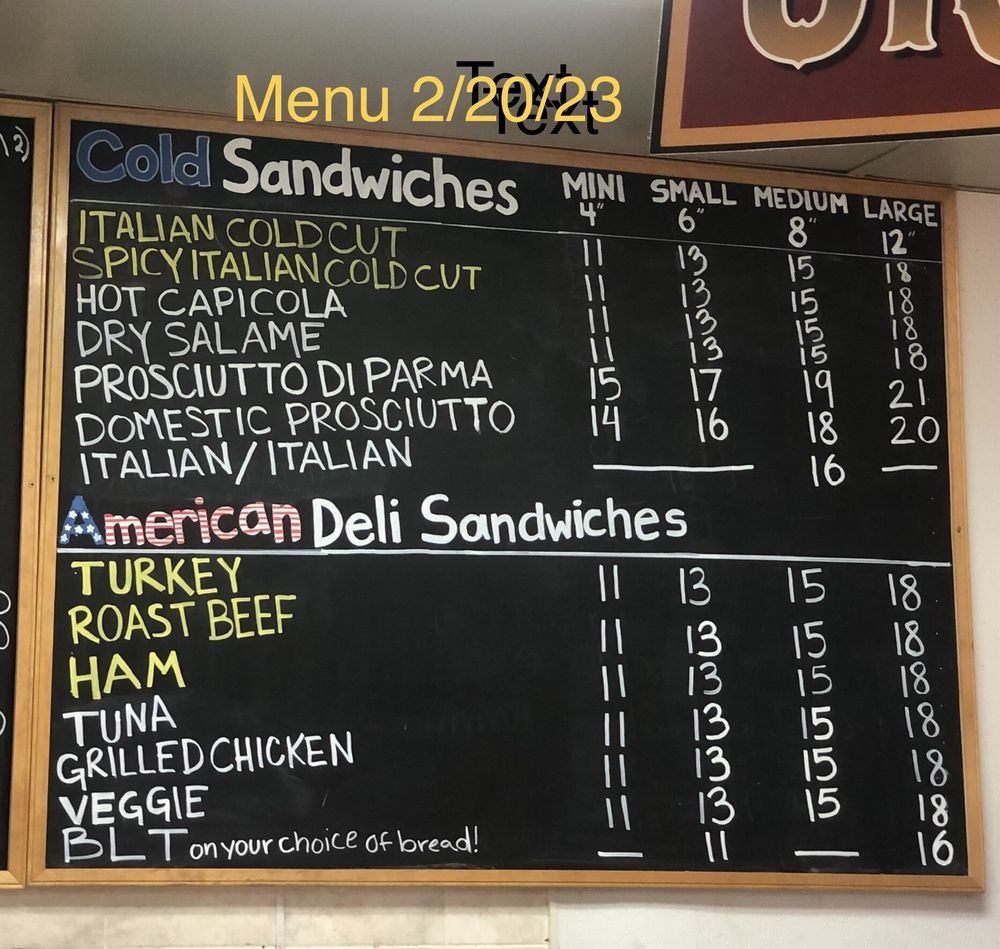 Text
Menu 2/20/23
Text
Cold Sandwiches MINI SMALL MEDIUM LARGE
4" 6" 8" 12"
ITALIAN COLD CUT 11 13 15 18
SPICY ITALIAN COLD CUT 11 13 15 18
HOT CAPICOLA 11 13 15 18
DRY SALAME 11 13 15 18
PROSCIUTTO DI PARMA 15 17 19 21
DOMESTIC PROSCIUTTO 14 16 18 20
ITALIAN/ITALIAN — 16 —
American Deli Sandwiches
TURKEY 11 13 15 18
ROAST BEEF 11 13 15 18
HAM 11 13 15 18
TUNA 11 13 15 18
GRILLED CHICKEN 11 13 15 18
VEGGIE 11 13 15 18
BLT on your choice of bread! — 11 — 16